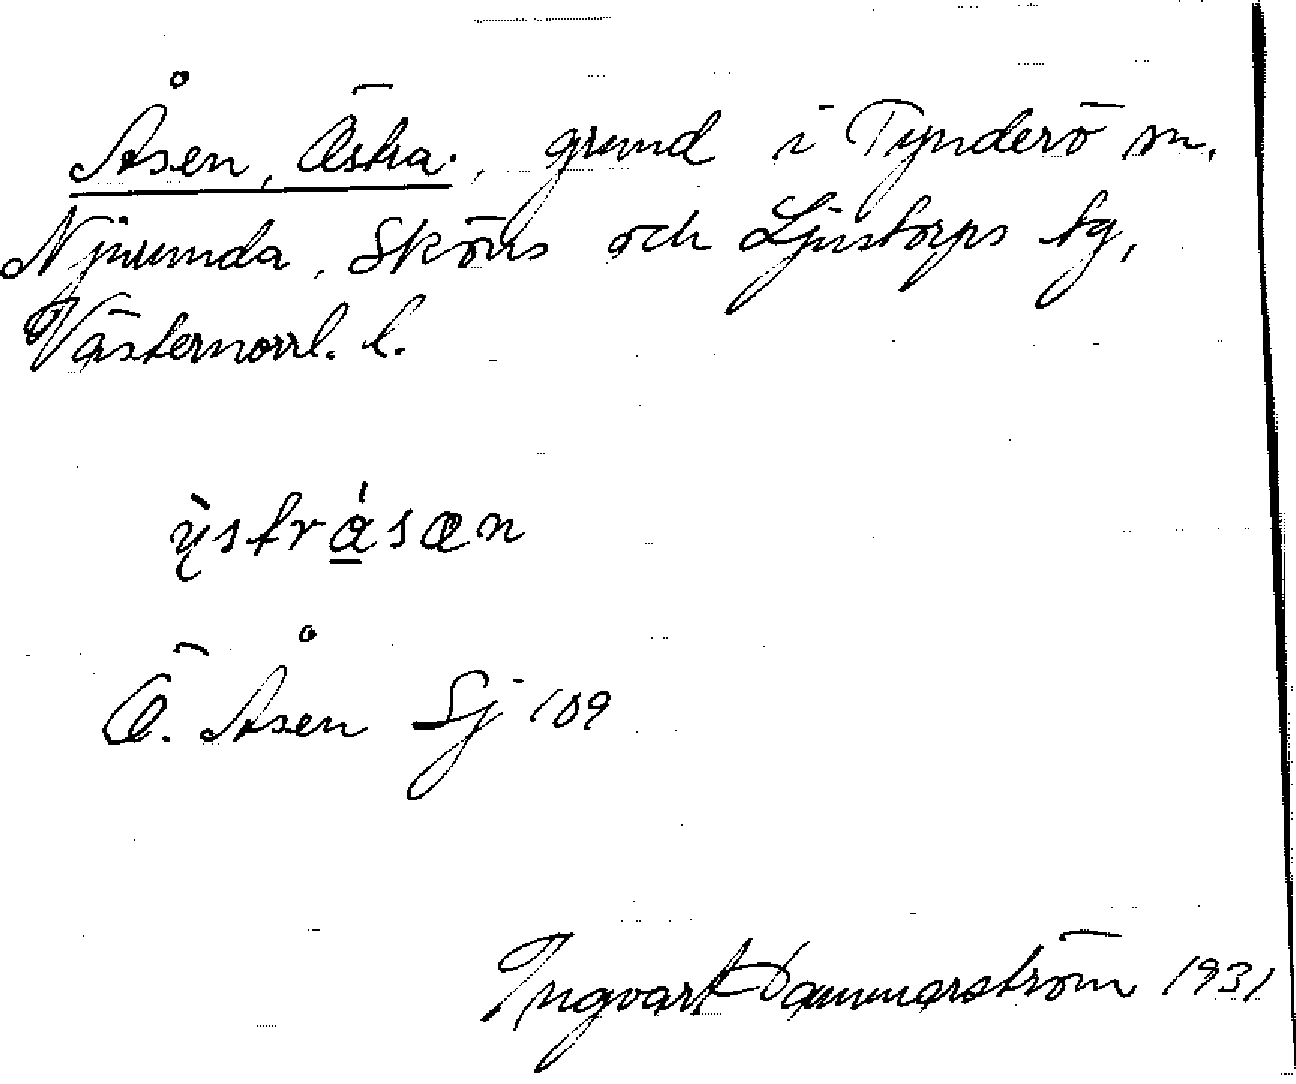 Åsen, Östra, grund i Tynderö sn.
Njurunda, Sköns och Ljustorps tg,
Västernorrl. l.
Ö. Åsen Sj 109
Ingvart Dammarström 1931